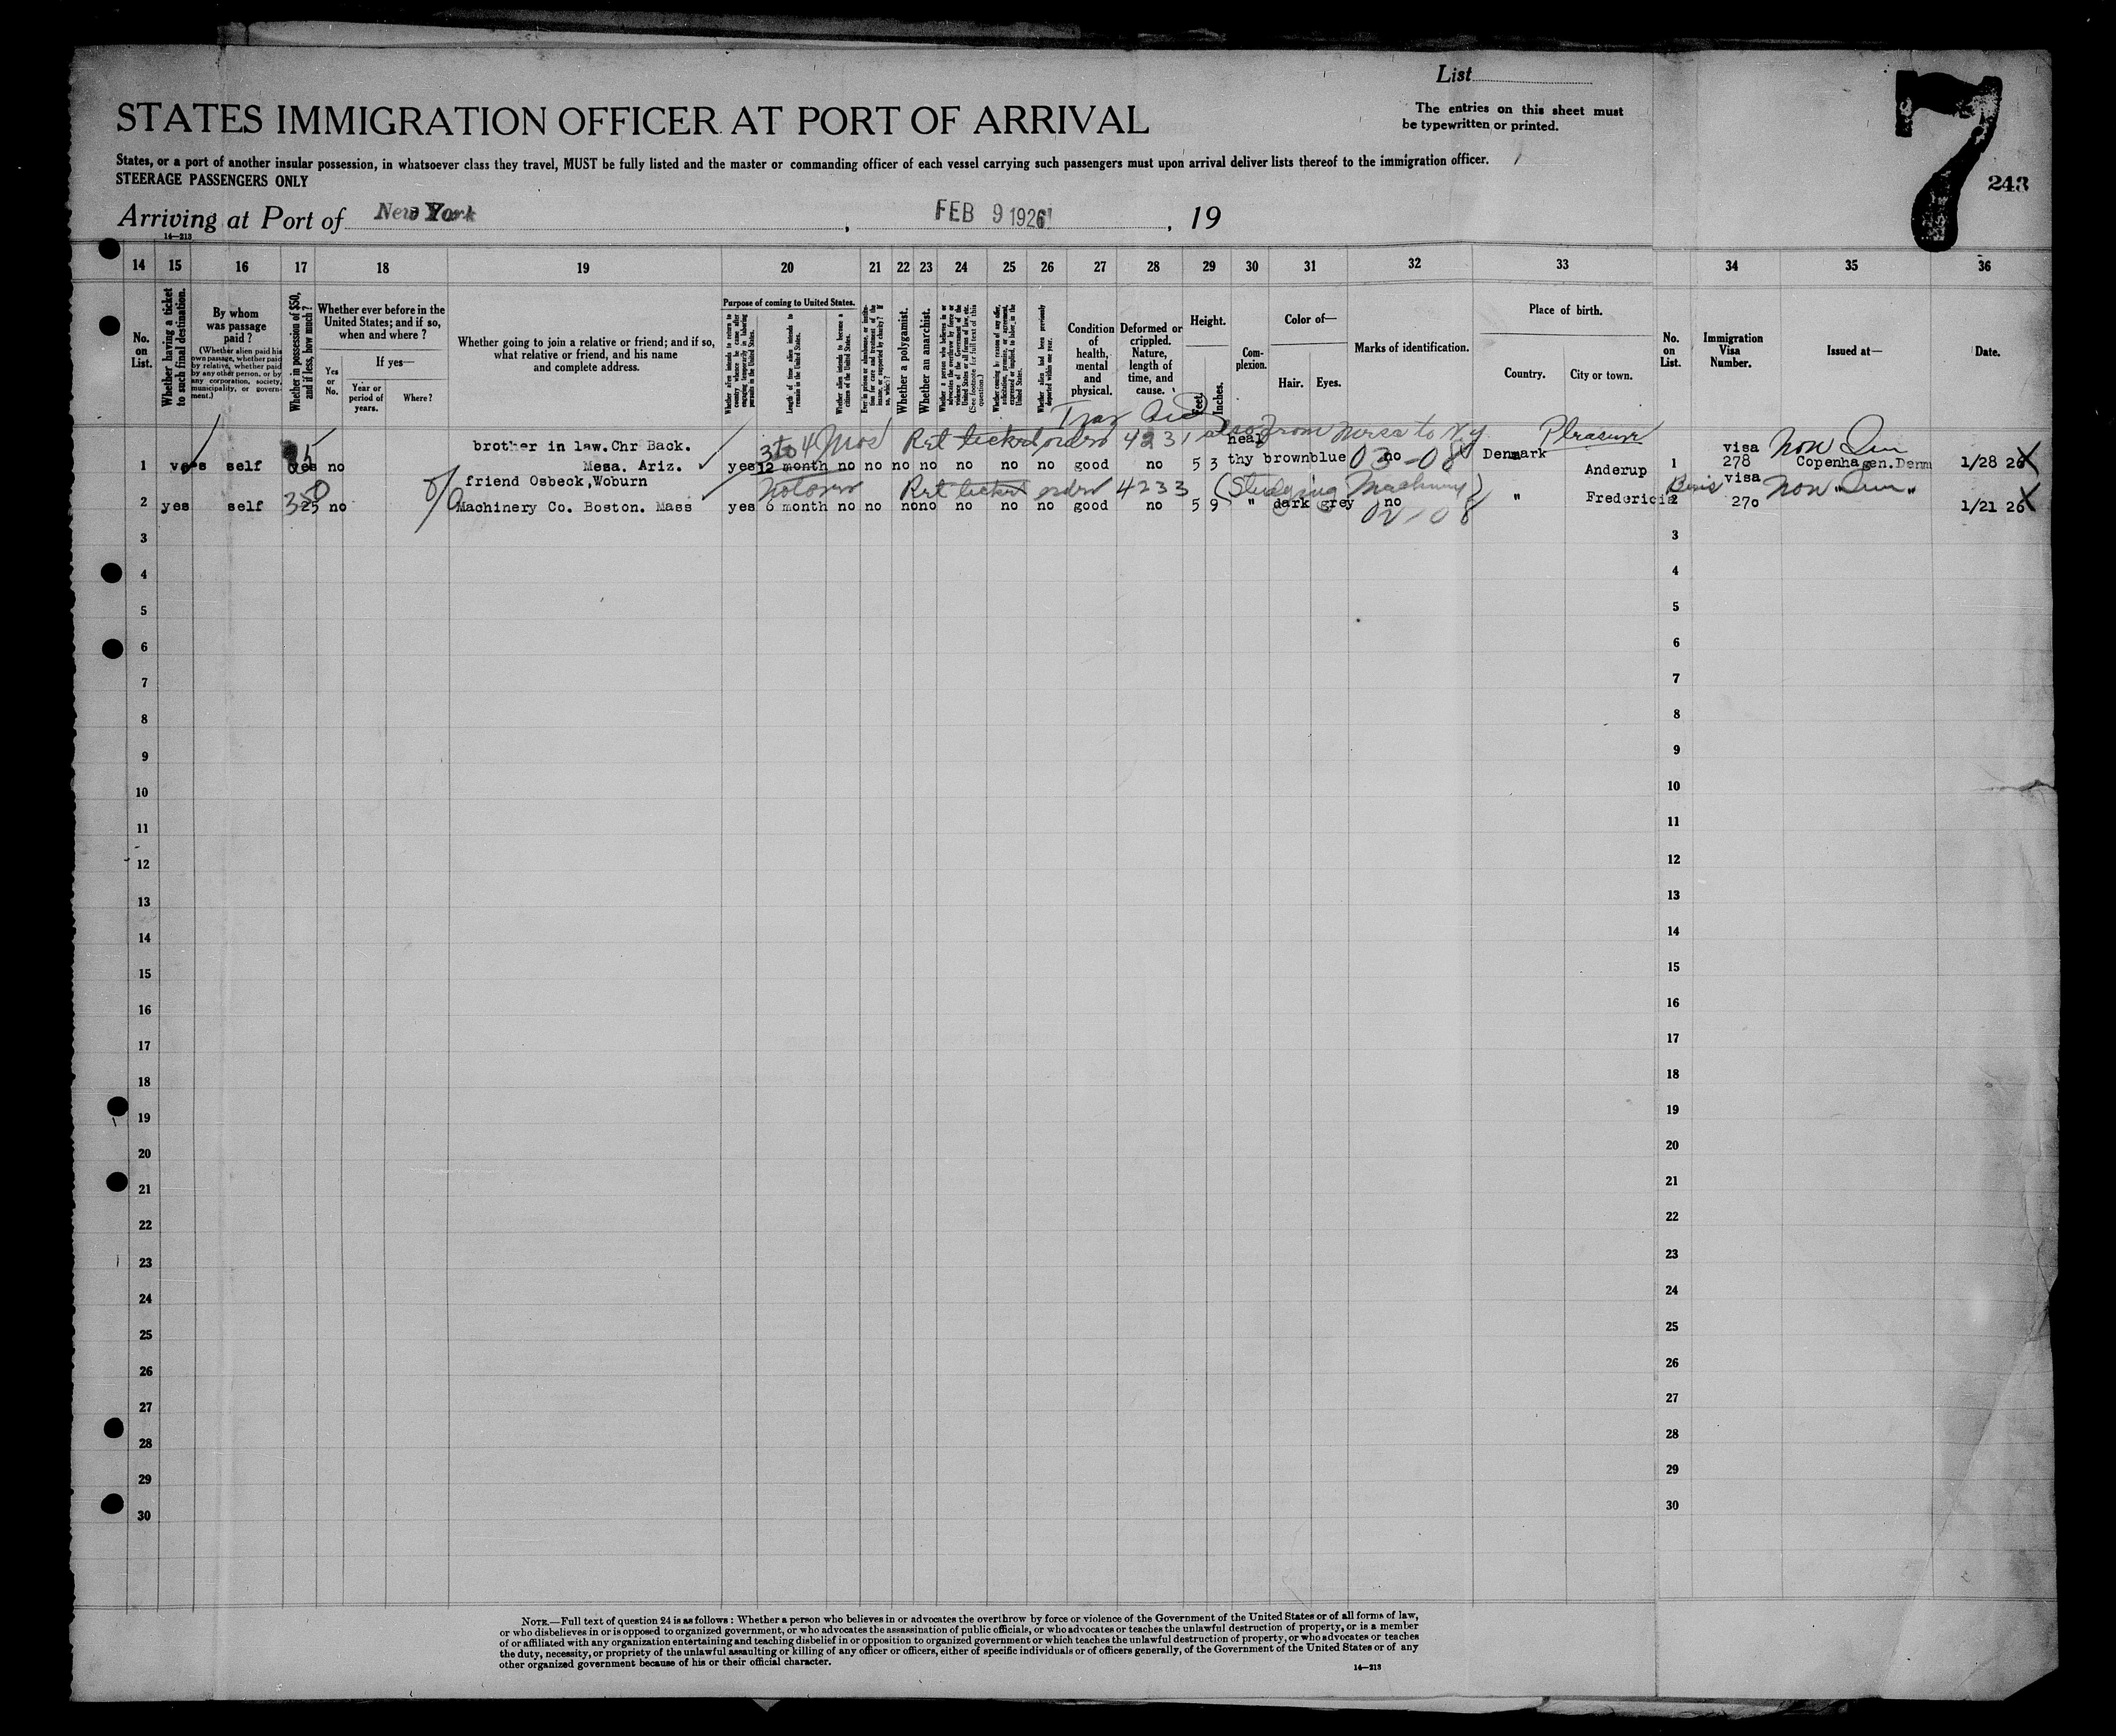 List
STATES IMMIGRATION OFFICER AT PORT OF ARRIVAL
The entries on this sheet must
be typewritten or printed.
7
243
States, or a port of another insular possession, in whatsoever class they travel, MUST be fully listed and the master or commanding officer of each vessel carrying such passengers must upon arrival deliver lists thereof to the immigration officer.
STEERAGE PASSENGERS ONLY
Arriving at Port of New York, FEB 9 1926, 19
14—213
14 15 16 17 18 19 20 21 22 23 24 25 26 27 28 29 30 31 32 33 34 35 36
No. on List.
Whether having a ticket to such final destination.
By whom was passage paid?
(Whether alien paid his own passage, whether paid by relative, whether paid by any other person, or by any corporation, society, municipality, or government.)
Whether in possession of $50, and if less, how much?
Whether ever before in the United States; and if so, when and where?
Yes or No.
If yes—
Year or period of years.
Where?
Whether going to join a relative or friend; and if so, what relative or friend, and his name and complete address.
Purpose of coming to United States.
Whether alien intends to return to country whence he came after engaging temporarily in laboring pursuits in the United States.
Length of time alien intends to remain in the United States.
Whether alien intends to become a citizen of the United States.
Ever in prison or almshouse, or institution for care and treatment of the insane, or supported by charity? If so, which?
Whether a polygamist.
Whether an anarchist.
Whether a person who believes in or advocates the overthrow by force or violence of the Government of the United States or all forms of law, etc. (See footnote for full text of this question.)
Whether coming by reason of any offer, solicitation, promise, or agreement, expressed or implied, to labor in the United States.
Whether alien had been previously deported within one year.
Condition of health, mental and physical.
Deformed or crippled. Nature, length of time, and cause.
Height.
Feet.
Inches.
Complexion.
Color of—
Hair.
Eyes.
Marks of identification.
Place of birth.
Country.
City or town.
No. on List.
Immigration Visa Number.
Issued at—
Date.
brother in law. Chr Back. 3 to 4 Mos Ret ticket order 4231 also from Mesa to N.Y. Pleasure
heal visa Non
1 yes self yes 25 no Mesa. Ariz. yes 12 month no no no no no no no good no 5 3 thy brown blue no 03-08 Denmark Anderup 1 278 Copenhagen. Denm 1/28 26
friend Osbeck, Woburn Ret ticket order 4233 (Studying Machinery) visa Non
2 yes self 325 no Machinery Co. Boston. Mass yes 6 month no no no no no no no good no 5 9 " dark grey no 02-08 " Fredericia 2 270 " " 1/21 26
3 3
4 4
5 5
6 6
7 7
8 8
9 9
10 10
11 11
12 12
13 13
14 14
15 15
16 16
17 17
18 18
19 19
20 20
21 21
22 22
23 23
24 24
25 25
26 26
27 27
28 28
29 29
30 30
NOTE.—Full text of question 24 is as follows: Whether a person who believes in or advocates the overthrow by force or violence of the Government of the United States or of all forms of law,
or who disbelieves in or is opposed to organized government, or who advocates the assassination of public officials, or who advocates or teaches the unlawful destruction of property, or is a member
of or affiliated with any organization entertaining and teaching disbelief in or opposition to organized government or which teaches the unlawful destruction of property, or who advocates or teaches
the duty, necessity, or propriety of the unlawful assaulting or killing of any officer or officers, either of specific individuals or of officers generally, of the Government of the United States or of any
other organized government because of his or their official character.
14—213